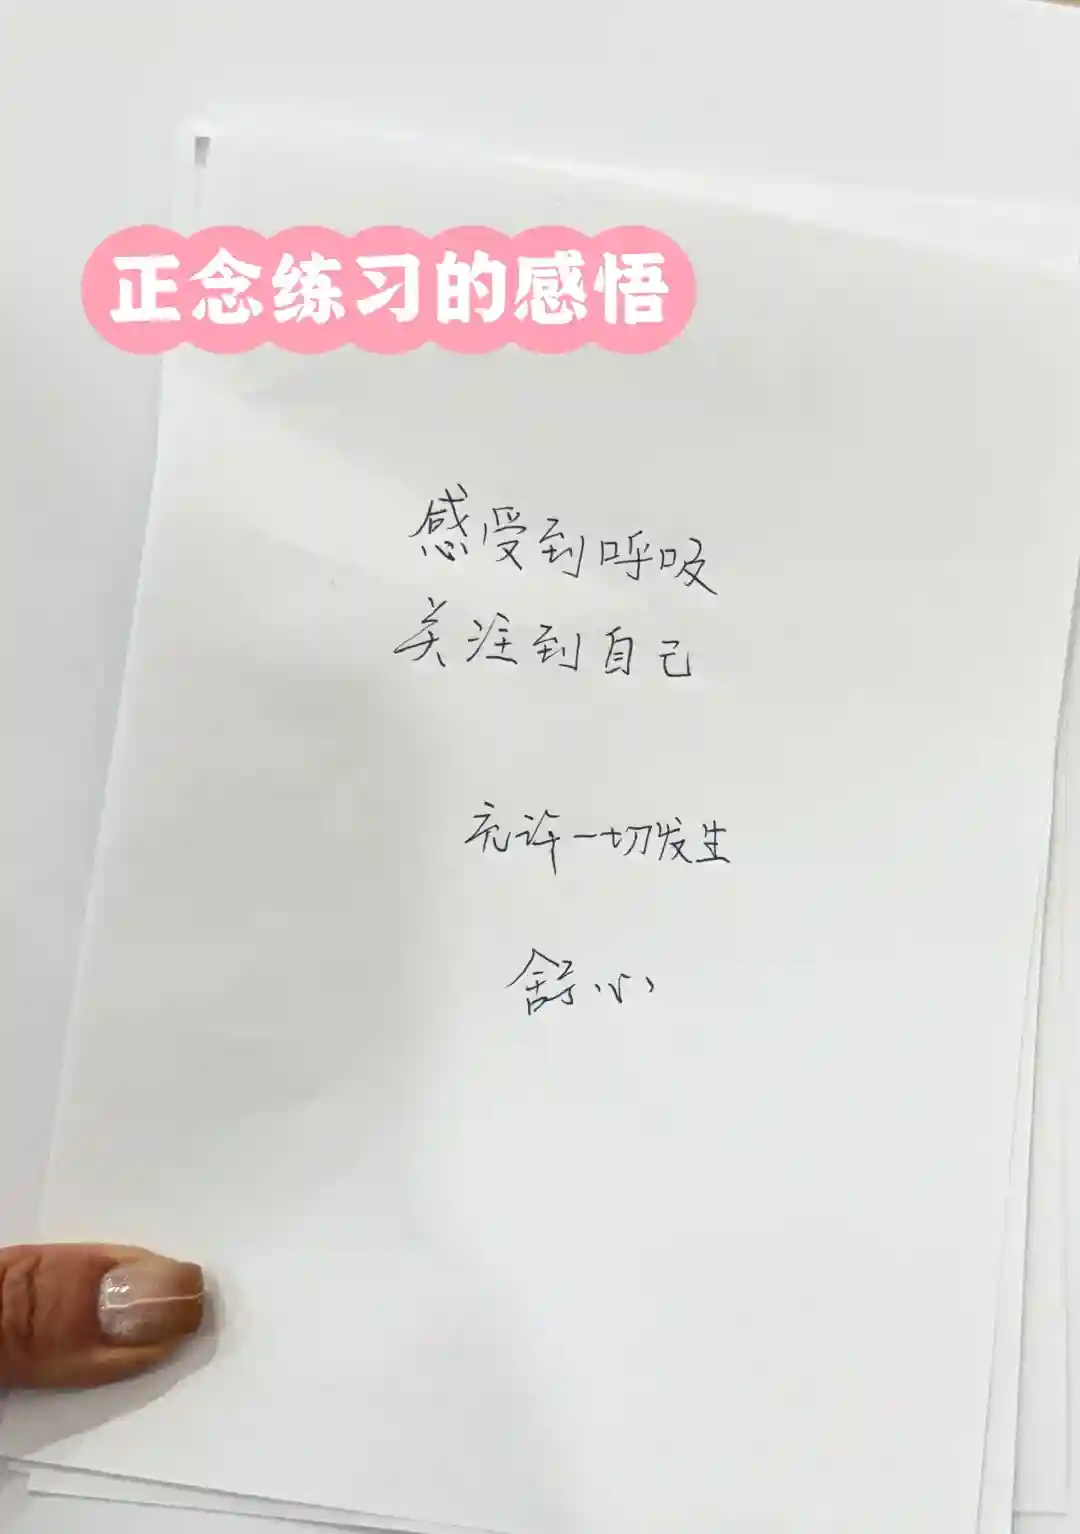 正念练习的感悟
感受到呼吸
关注到自己
允许一切发生
舒心